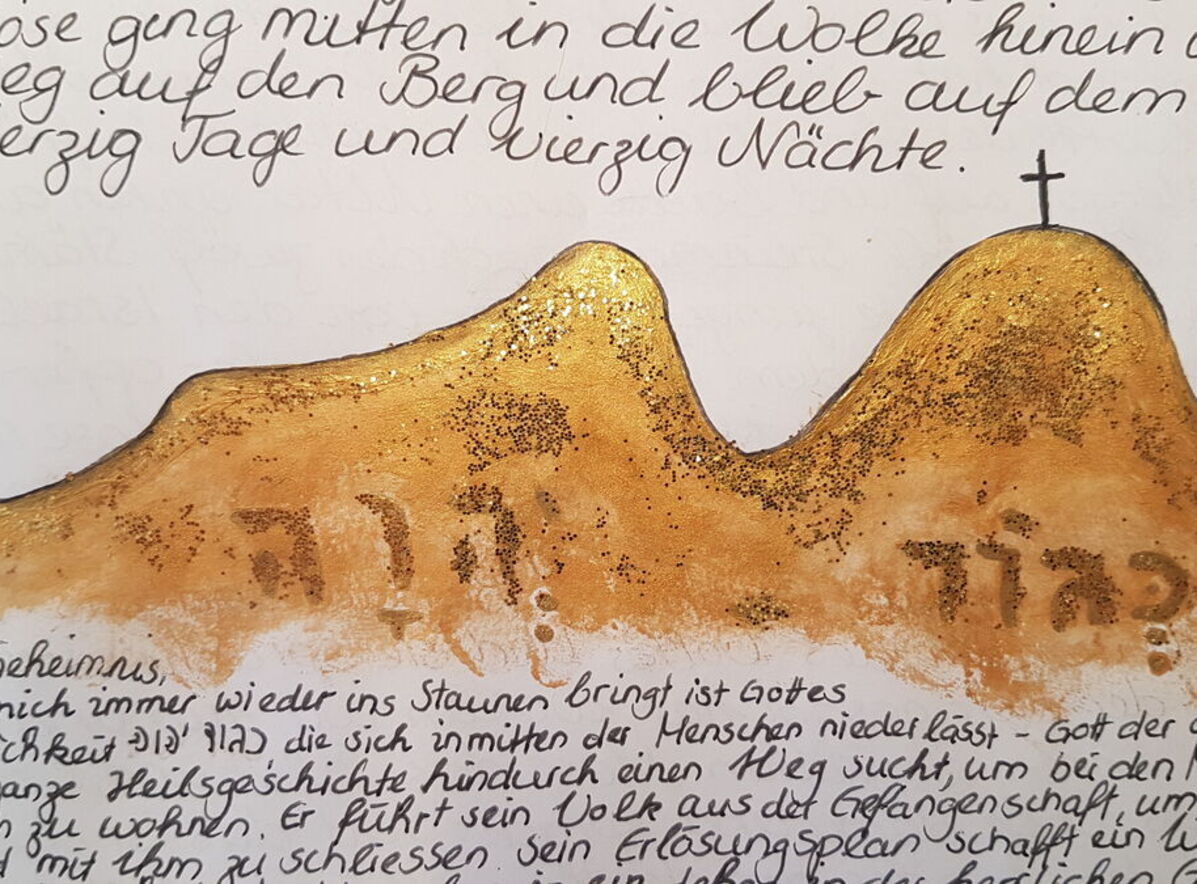 ose ging mitten in die Wolke hinein
eg auf den Berg und blieb auf dem
erzig Tage und vierzig Nächte.
כְּבוֹד יְהוָה
Geheimnis,
mich immer wieder ins Staunen bringt ist Gottes
ichkeit כבוד יהוה die sich inmitten der Menschen niederlässt – Gott der
ganze Heilsgeschichte hindurch einen Weg sucht, um bei den
n zu wohnen. Er führt sein Volk aus der Gefangenschaft, um
d mit ihm zu schliessen. Sein Erlösungsplan schafft ein